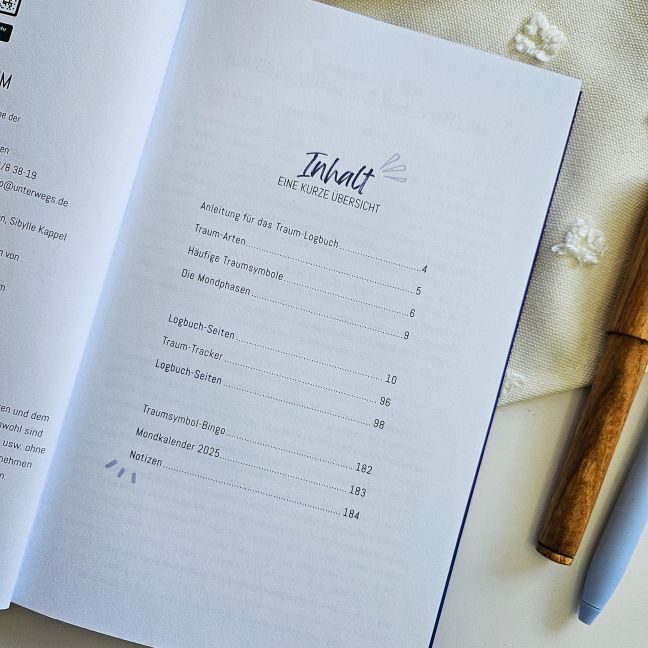 M
e der
en
/8 38-19
p@unterwegs.de
n, Sibylle Kappel
n von
m
en und dem
wohl sind
usw. ohne
nehmen
n.
Inhalt
EINE KURZE ÜBERSICHT
Anleitung für das Traum-Logbuch 4
Traum-Arten 5
Häufige Traumsymbole 6
Die Mondphasen 9
Logbuch-Seiten 10
Traum-Tracker 96
Logbuch-Seiten 98
Traumsymbol-Bingo 182
Mondkalender 2025 183
Notizen 184